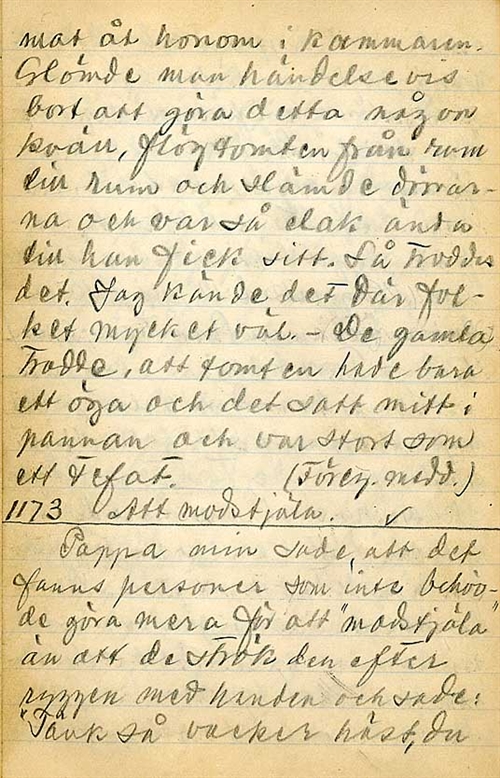 mat åt honom i kammaren.
Glömde man händelsevis
bort att göra detta någon
kväll, flög tomten från rum
till rum och slämde dörrar-
na och var så elak ända
till han fick sitt. Så troddes
det. Jag kände det där fol-
ket mycket väl. - De gamla
trodde, att tomten hade bara
ett öga och det satt mitt i
pannan och var stort som
ett tefat. (Föreg. medd.)
1173 Att modstjäla. ✓
Pappa min sade, att det
fanns personer som inte behöv-
de göra mera för att "modstjäla"
än att de strök den efter
ryggen med handen och sade:
"Tänk så vacker häst, du